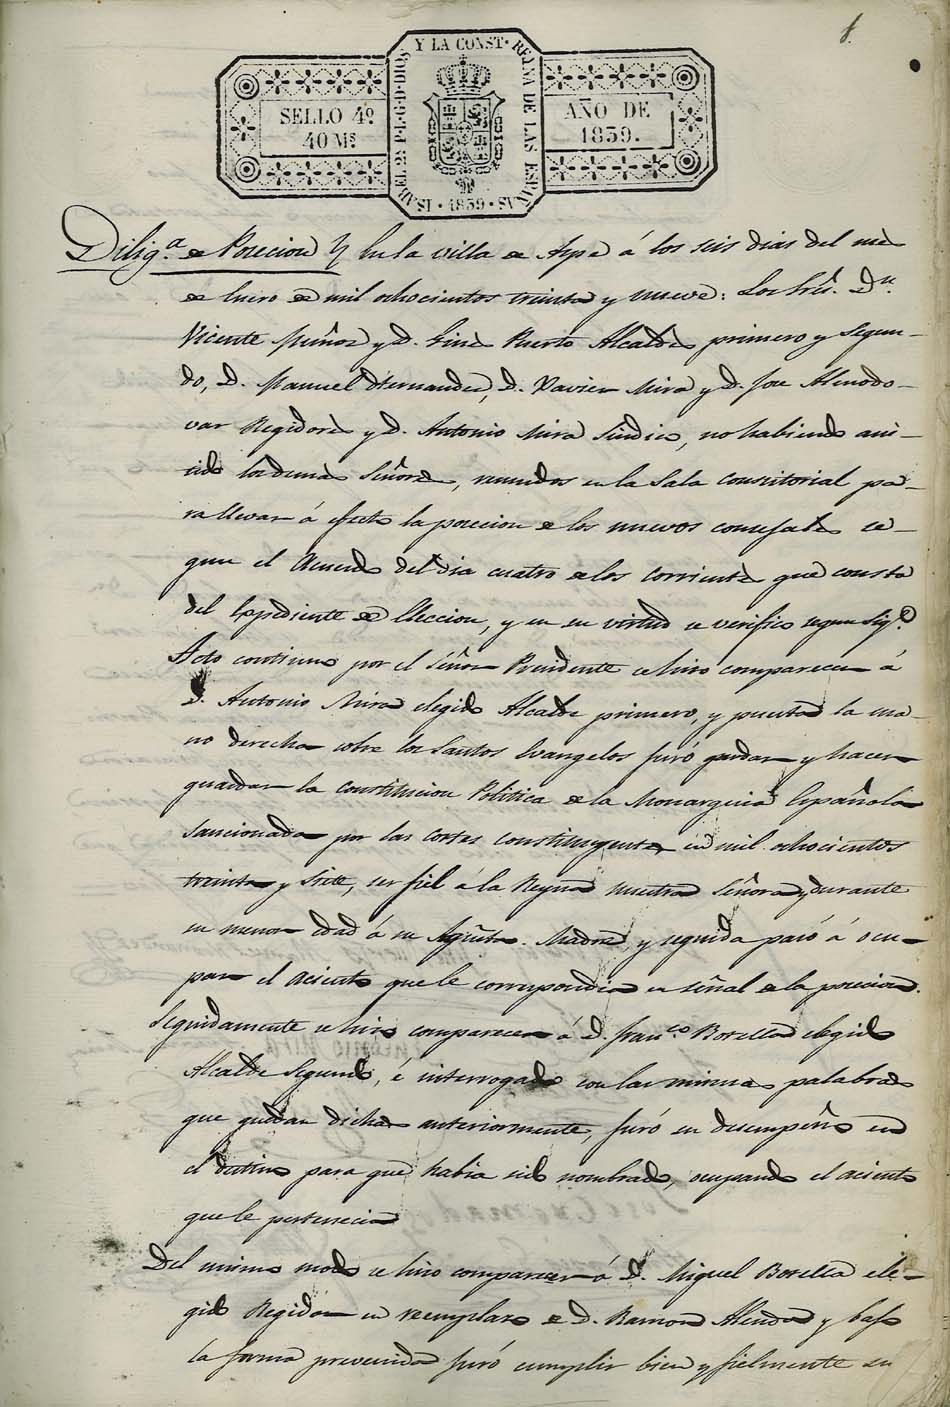 1.
Y LA CONST. REYNA DE LAS ESPAÑAS
ISABEL 2ª P.L.G.D.DIOS
SELLO 4º
40 Ms
AÑO DE
1839.
· 1839 ·
Diligª de Posecion } En la villa de Aspe á los seis dias del mes
de Enero de mil ochocientos treinta y nueve: Los Sres. Dn.
Vicente Muñoz y D. Gines Puerto Alcaldes primero y segun-
do, D. Manuel Hernandez, D. Xavier Mira y D. Jose Almodo-
var Regidores y D. Antonio Mira Sindico, no habiendo asis-
tido los demas Señores, reunidos en la Sala Consistorial pa-
ra llevar á efecto la posecion de los nuevos consejales se-
gun el Acuerdo del dia cuatro de los corrientes que consta
del Expediente de Eleccion, y en su virtud se verifico segun sigᵉ
Acto continuo por el Señor Presidente se hizo comparecer á
D. Antonio Mira elegido Alcalde primero, y puesta la ma-
no derecha sobre los Santos Evangelos juró guardar y hacer
guardar la Constitucion Politica de la Monarquia Española
sancionada por las Cortes constituyentes en mil ochocientos
treinta y siete, ser fiel á la Reyna nuestra Señora y durante
su menor edad á su Agusta Madre y seguida pasó á ocu-
par el aciento que le correspondia en señal de la posecion.
Seguidamente se hizo comparecer á D. Franco Botella elegido
Alcalde Segundo, é interrogado con las mismas palabras
que quedan dichas anteriormente, juró su desempeño en
el destino para que habia sido nombrado, ocupando el aciento
que le pertenecia
Del mismo modo se hizo comparecer á D. Miguel Botella ele-
gido Regidor en reemplazo de D. Ramon Almodovar y bajo
la forma prevenida juró cumplir bien y fielmente su